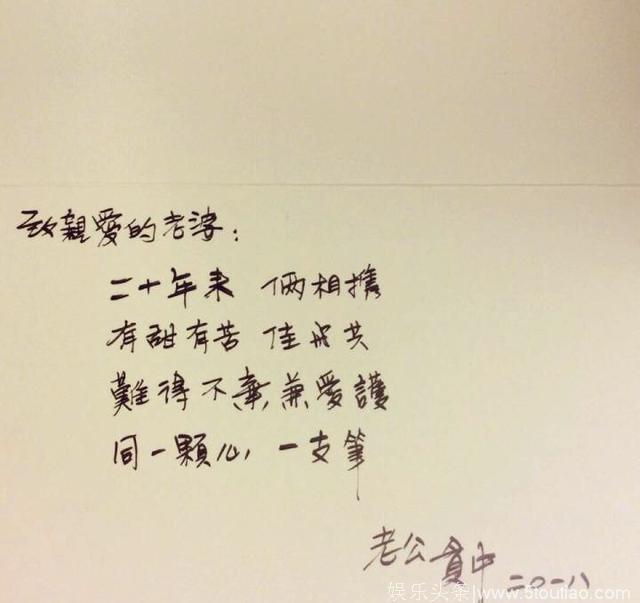 致親愛的老婆：
二十年来 倆相攜
有甜有苦 佳 共
難得不棄兼愛護
同一顆心 一支筆
老公 中 二〇一八
娱乐头条|www.5toutiao.com